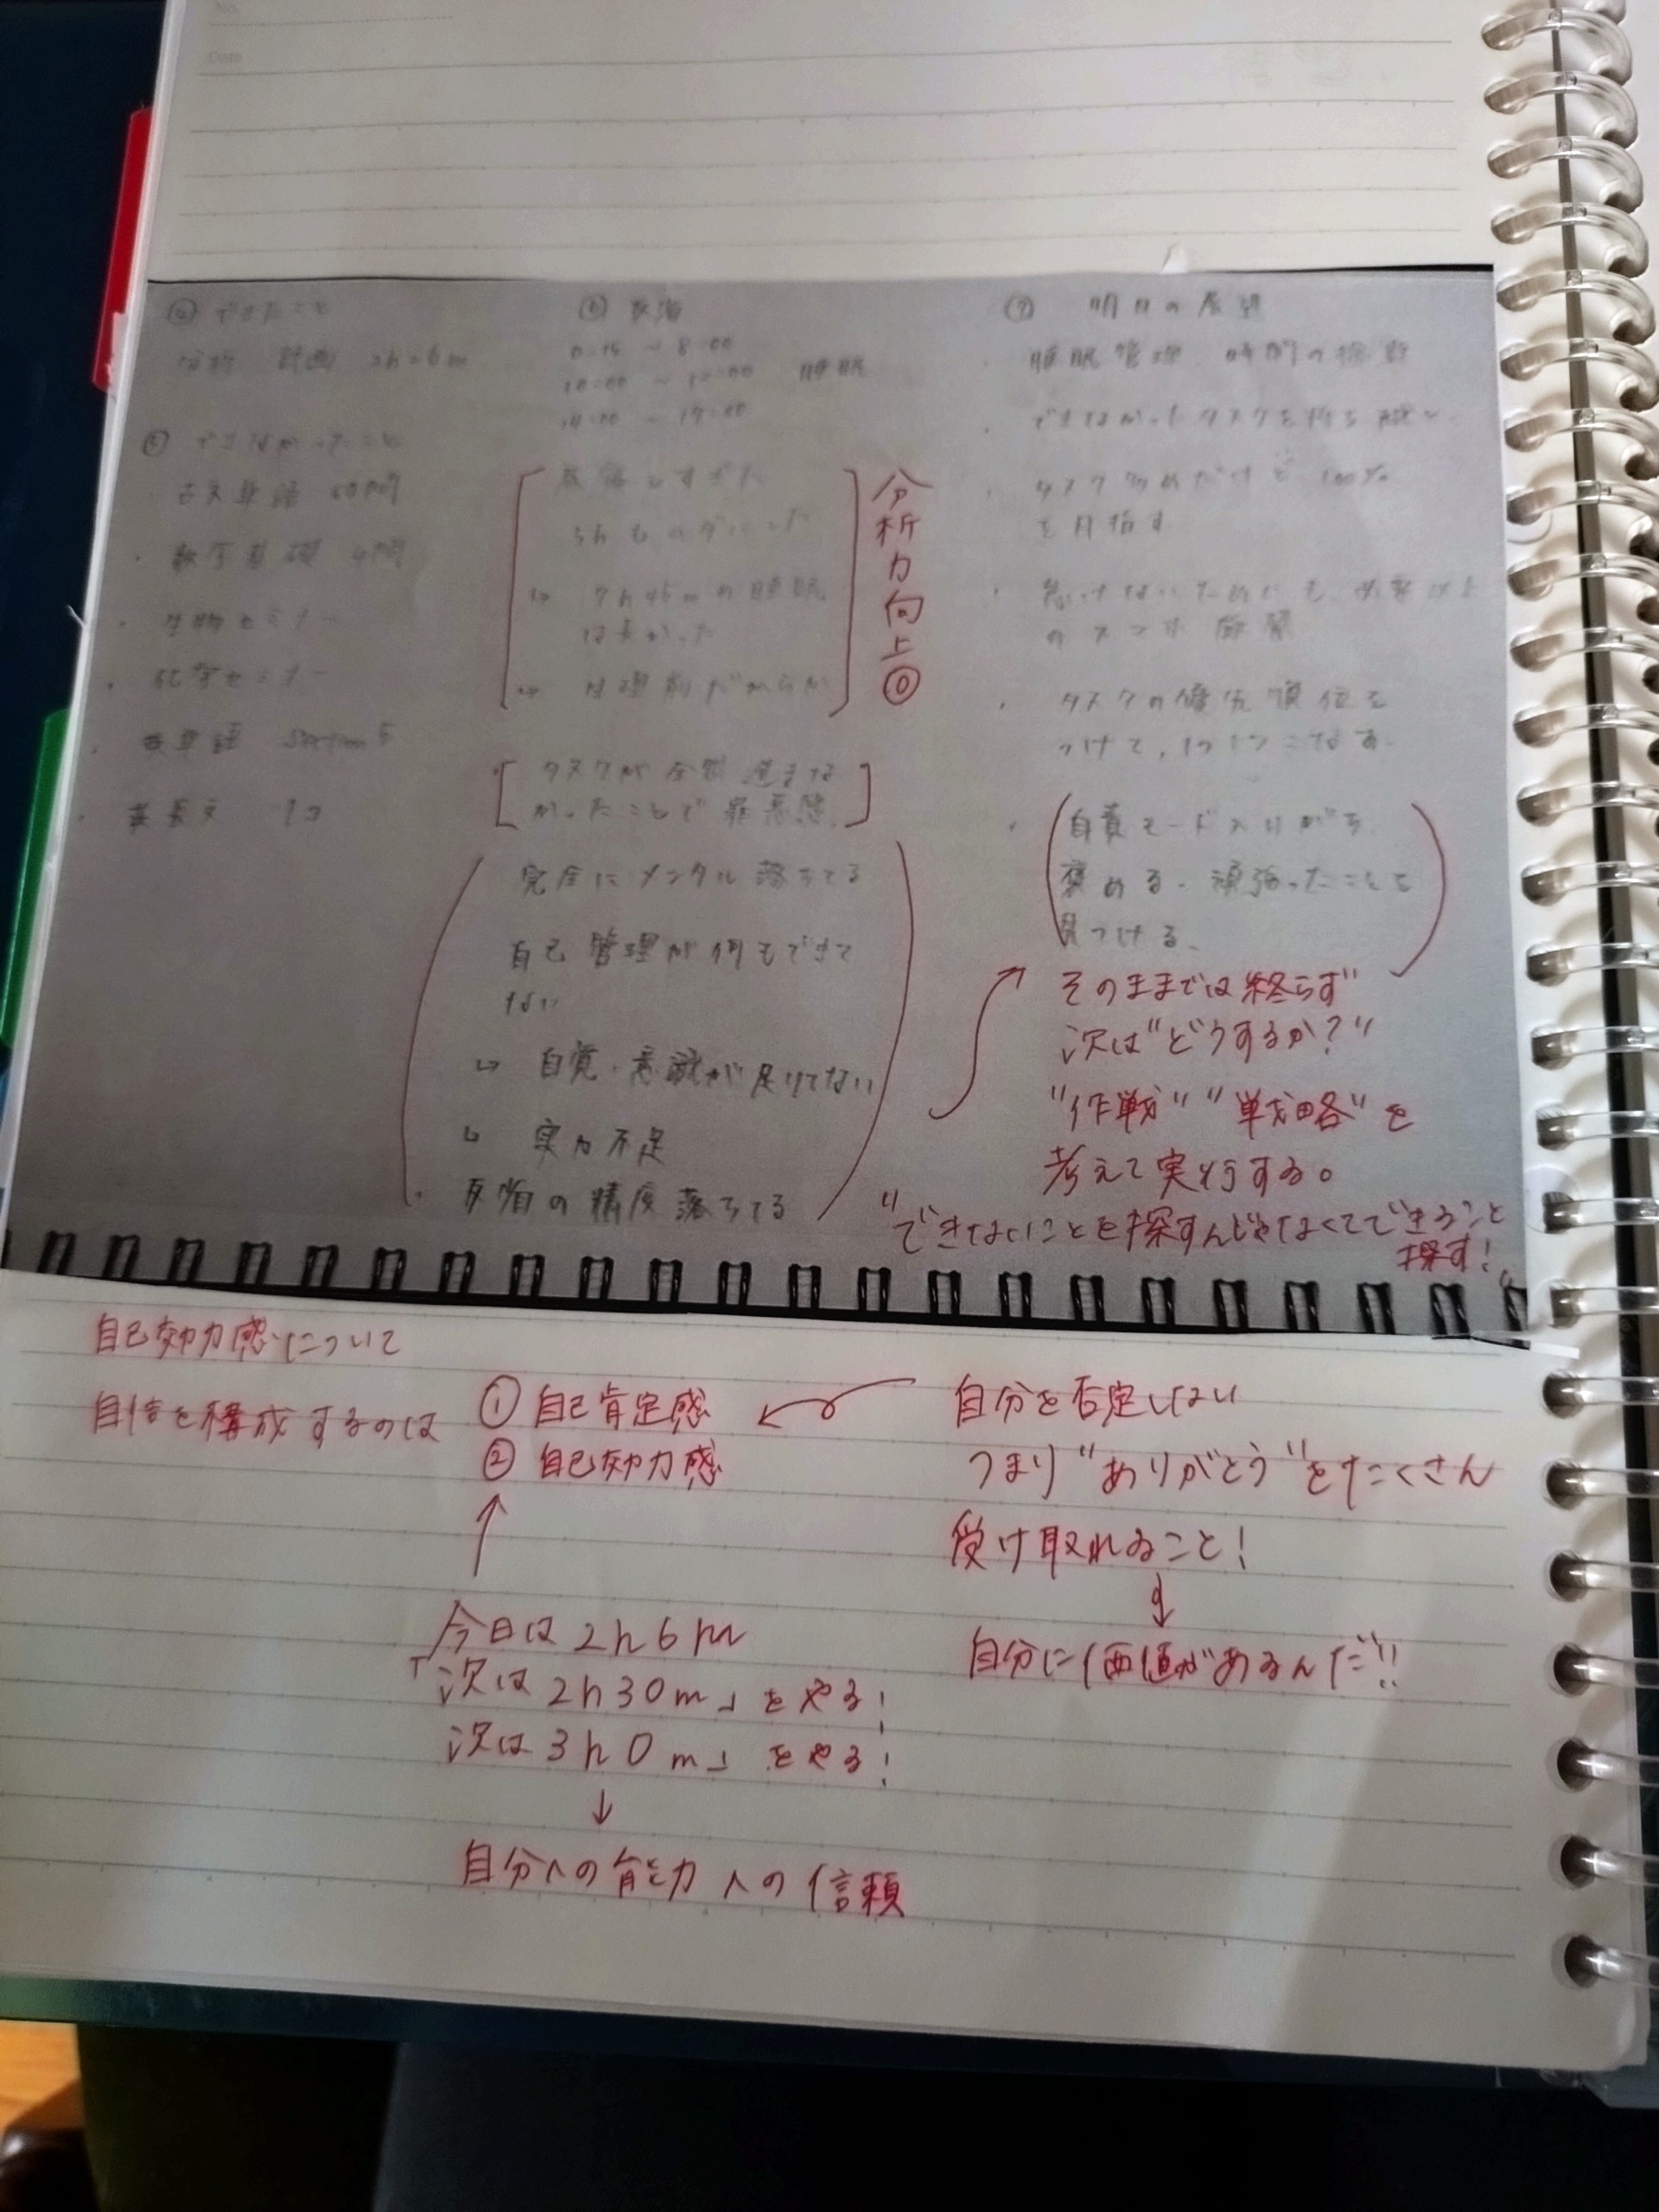 No.
Date
できたこと
分析 計画 2h 6m
できなかったこと
古文単語
・生物セミナー
・化学セミナー
英単語 section 5
英長文 1コ
⑥ 反省
~ 8:00
10:00 ~ 睡眠
~ 17:00
昼寝しすぎた
↳ 7h 45mの睡眠
は長かった
↳ 生理前だからか
タスクが全然進まな
かったことで罪悪感
完全にメンタル落ちてる
自己管理が何もできて
ない
↳ 自覚・意識が足りてない
↳ 実力不足
・反省の精度落ちてる
分析力向上◎
⑦ 明日の展望
・睡眠管理、時間の
・できなかったタスクを
・タスク多めだけど100%
を目指す
のスマホ
・タスクの優先順位を
つけて、1つ1つこなす。
・自責モード入りがち
褒める・頑張ったことを
見つける。
そのままでは終らず
次は"どうするか?"
"作戦" "戦略"を
考えて実行する。
"できないことを探すんじゃなくてできること
探す!"
自己効力感について
自信を構成するのは ①自己肯定感
②自己効力感
自分を否定しない
つまり"ありがとう"をたくさん
受け取れること!
↓
自分に価値があるんだ!!
↑
今日は2h6m
「次は2h30m」をやる!
次は3h0m」をやる!
↓
自分への能力への信頼